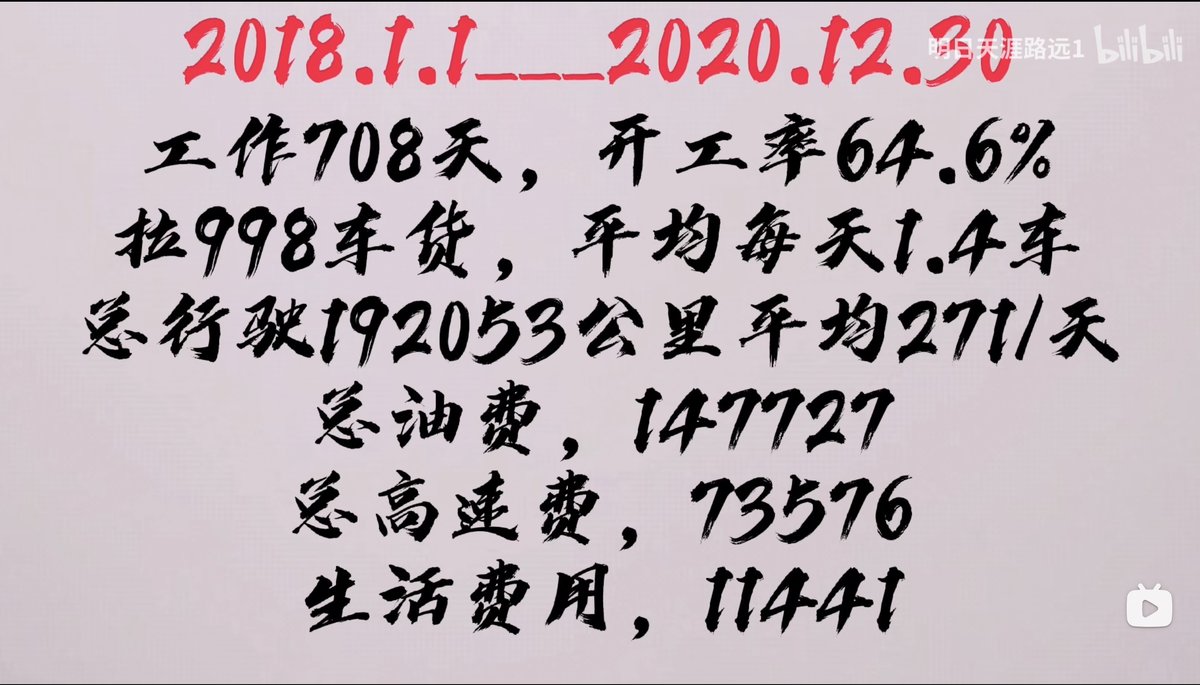 2018.1.1___2020.12.30
明日天涯路远1 bilibili
工作708天，开工率64.6%
拉998车货，平均每天1.4车
总行驶192053公里平均271/天
总油费，147727
总高速费，73576
生活费用，11441